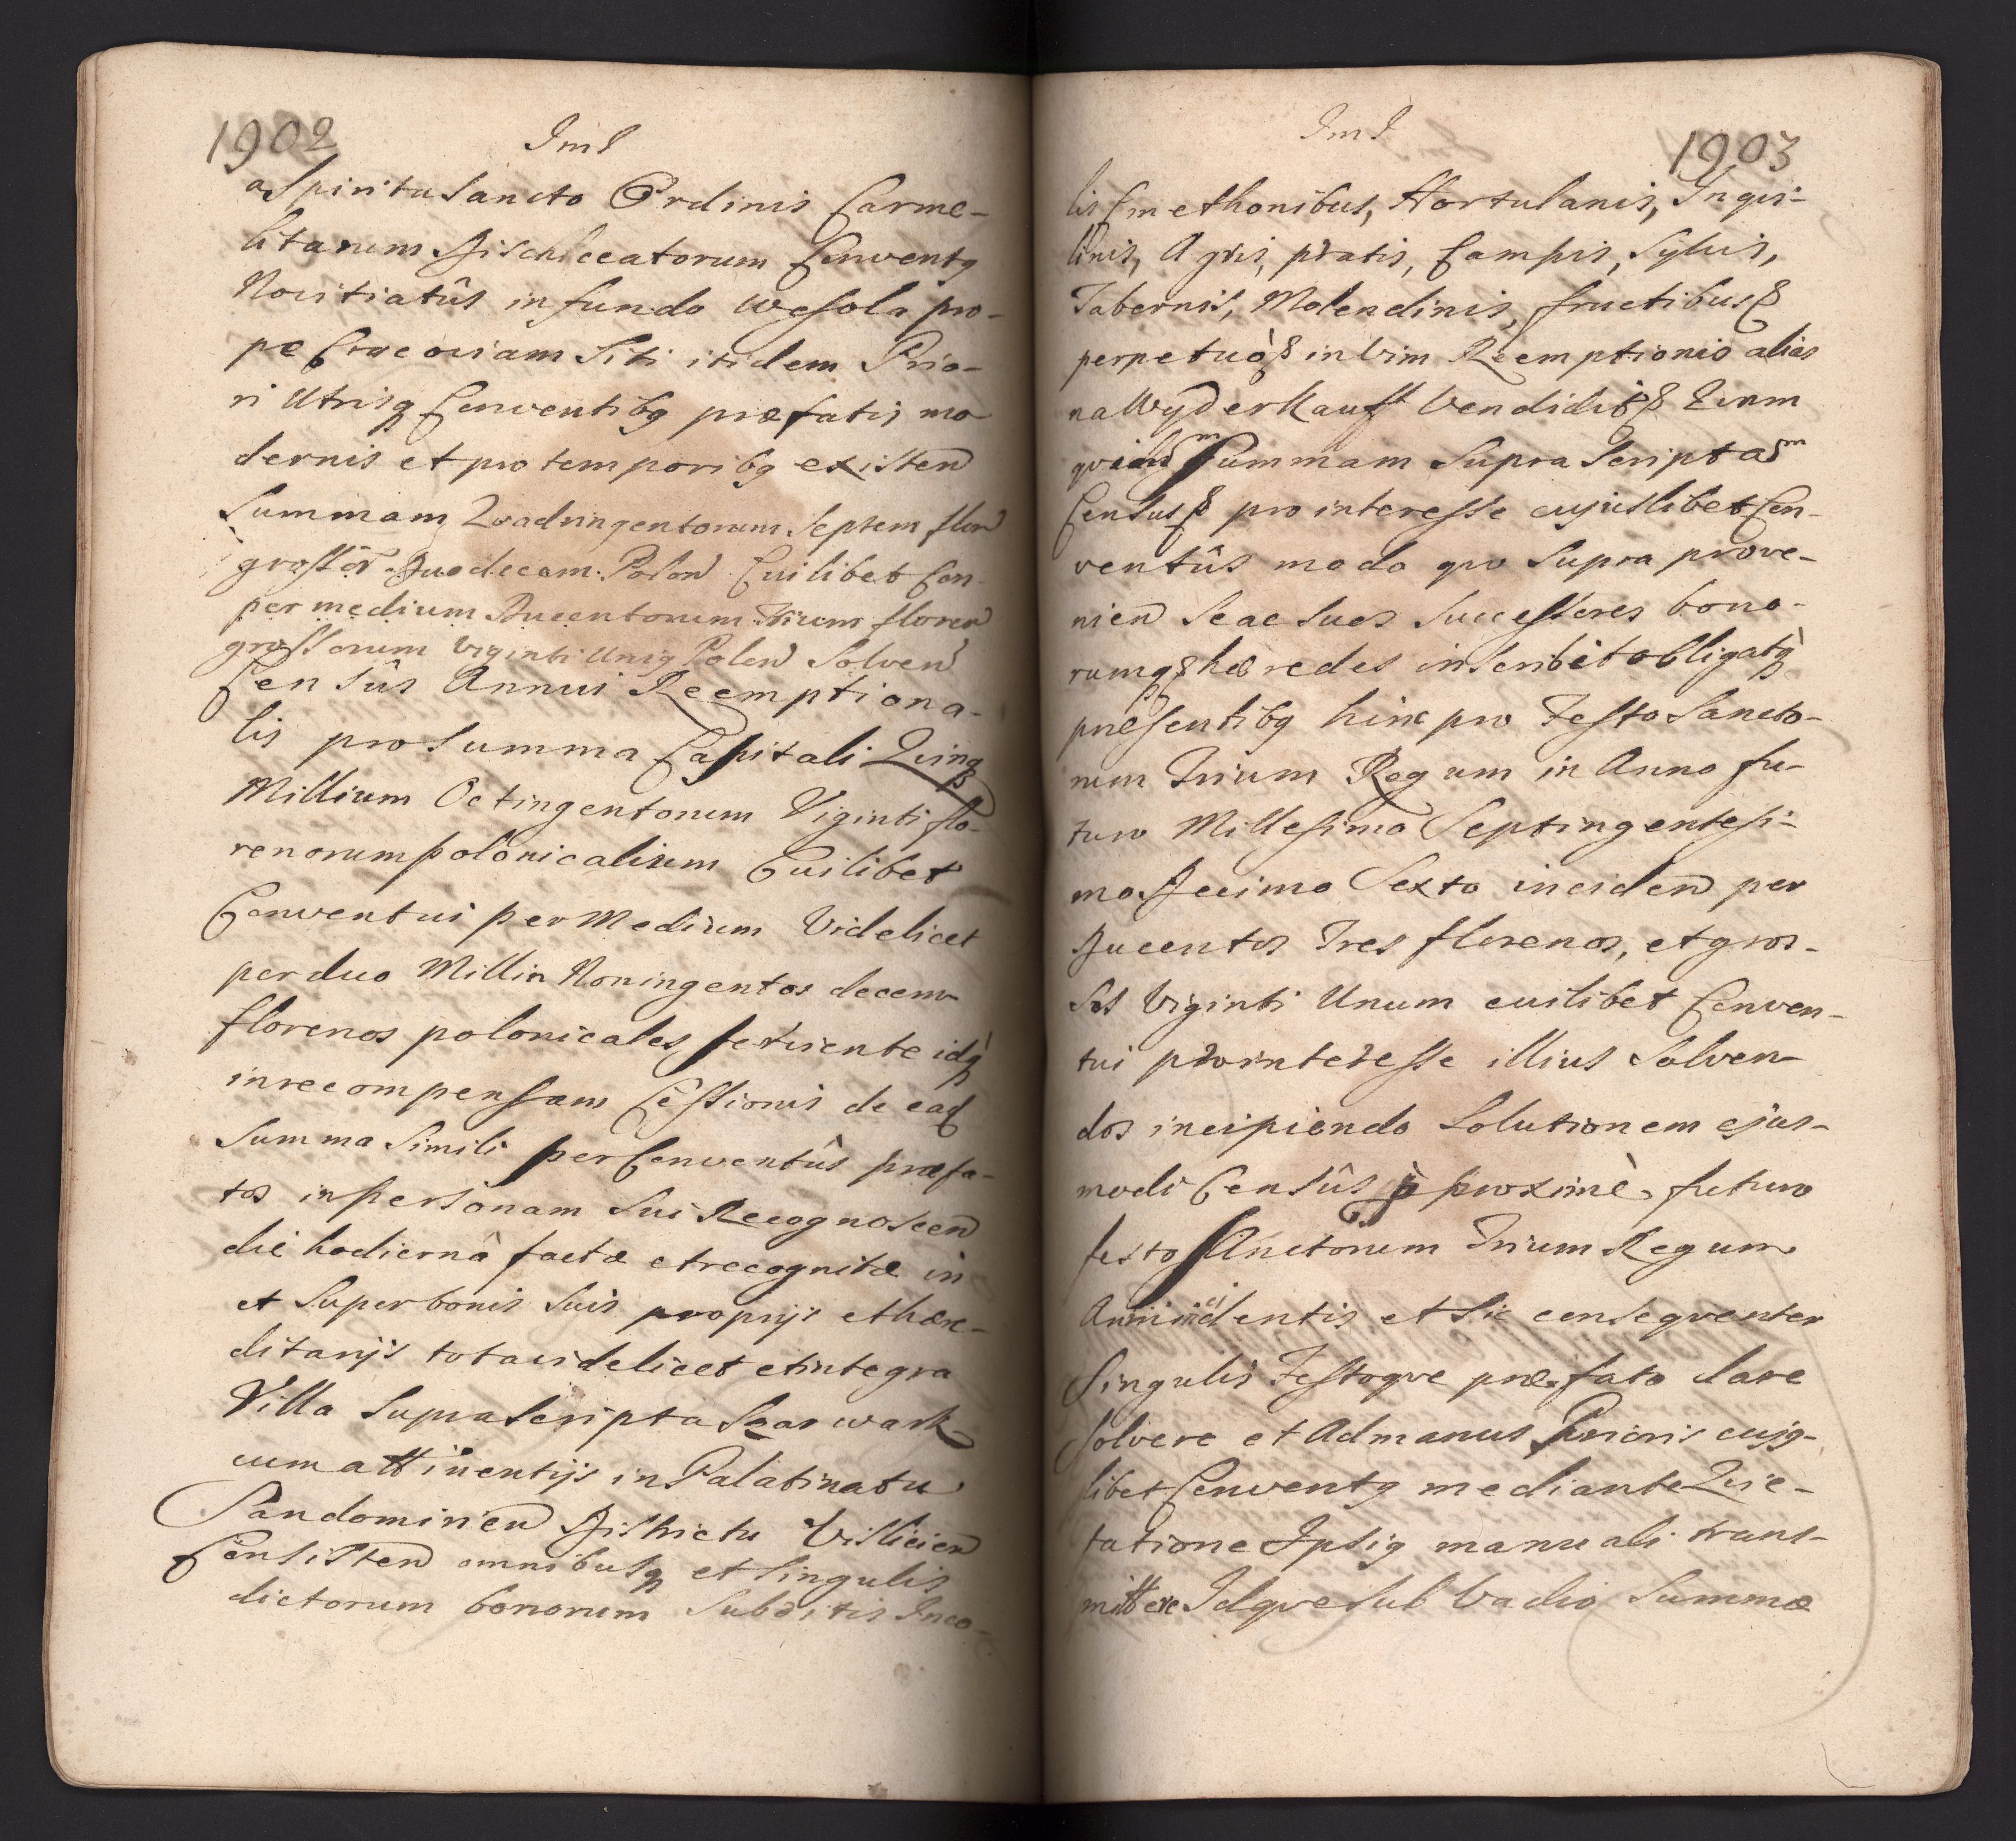 1902
Jml
a Spiritu Sancto Ordinis Carme-
litarum Discalceatorum Conventq
Novitiatûs in fundo Wesola pro-
pe Cracoviam Siti itidem Prio-
ri Utrisq Conventibq præfatis mo
dernis et pro temporibq existen
Summam Quadringentorum Septem flor
grossor Duodecem Polon Cuilibet Con-
per medium Ducentorum Trium floren
grossorum viginti Uniq Polon Solven
Censûs Annui Reemptiona-
lis pro Summa Capitali Quinq
Millium Octingentorum Viginti flo-
renorum polonicalium Cuilibet
Conventui per Medium Videlicet
per duo Millia Noningentos decem
florenos polonicales serviente idq
in recompensam Cessionis de ead
Summa Simili per Conventûs præfa-
tos in personam Sui Recognoscen
die hodiernâ factæ et recognitæ in
et Super bonis Suis proprijs et hære-
ditarijs tota videlicet et integra
Villa Suprascripta Szarwark
cum attinentijs in Palatinatu
Sandomirien Districtu Vislicien
Consisten omnibusq et Singulis
dictorum bonorum Subditis Inco-
Jml
1903
lis Cmethonibus, Hortulanis, Inqui-
linis, Agris, pratis, Campis, Sylvis,
Tabernis, Molendinis, fructibus
perpetuò in Vim Reemptionis alias
na Wyderkauff Vendidit Quam
quidem Summam Supra Scriptam
Census pro interesse cujuslibet Con-
ventûs modo quo Supra prove-
nien Se ac Suos Successores bono-
rumq hæredes inscribit obligatq
præsentibq hinc pro Festo Sancto-
rum Trium Regum in Anno fu-
turo Millesimo Septingentesi-
mo Decimo Sexto inciden per
Ducentos Tres florenos, et gros-
sos Viginti Unum cuilibet Conven-
tui pro interesse illius Solven-
dos incipiendo Solutionem ejus-
modi Censûs à proximè futuro
festo Sanctorum Trium Regum
Anni incidentis et Sic consequenter
Singulis Festoque præfato dare
Solvere et Ad manus Prioris cujq-
libet Conventq mediante Quie-
tatione Ipsiq manuali trans-
mittere Idque Sub Vadio Summæ